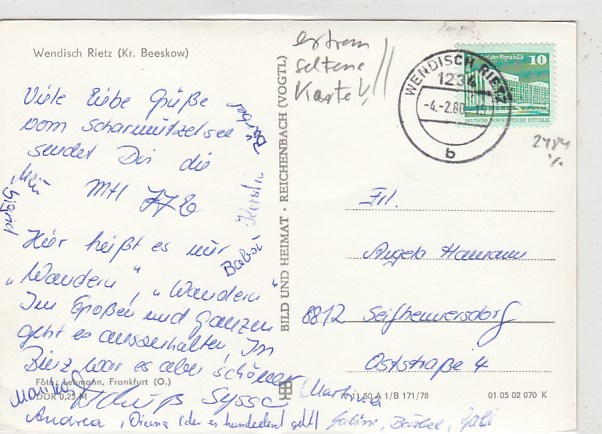 Wendisch Rietz (Kr. Beeskow)
Viele liebe Grüße
vom Scharmützelsee
sendet Dir die
MH 77 b
Hier heißt es nur
„Wandern", „Wandern"
Im Großen und Ganzen
geht es auszuhalten, In
Binz war es aber schöner
Foto: Lehmann, Frankfurt (O.)
DDR 0,25 M
Andrea, Diana (der es hundeelend geht) Sabine, Bärbel, Gabi
Sigrid
Babsi
Kerstin
Bärbel
Martina
BILD UND HEIMAT · REICHENBACH (VOGTL)
extrem
seltene
Karte!!
WENDISCH RIETZ
1234
-4.-2.80-15
b
10
DEUTSCHE DEMOKRATISCHE REPUBLIK
2484
Frl.
Angela Hamann
8812 Seifhennersdorf
Oststraße 4
A 1/B 171/78
01 05 02 070 K